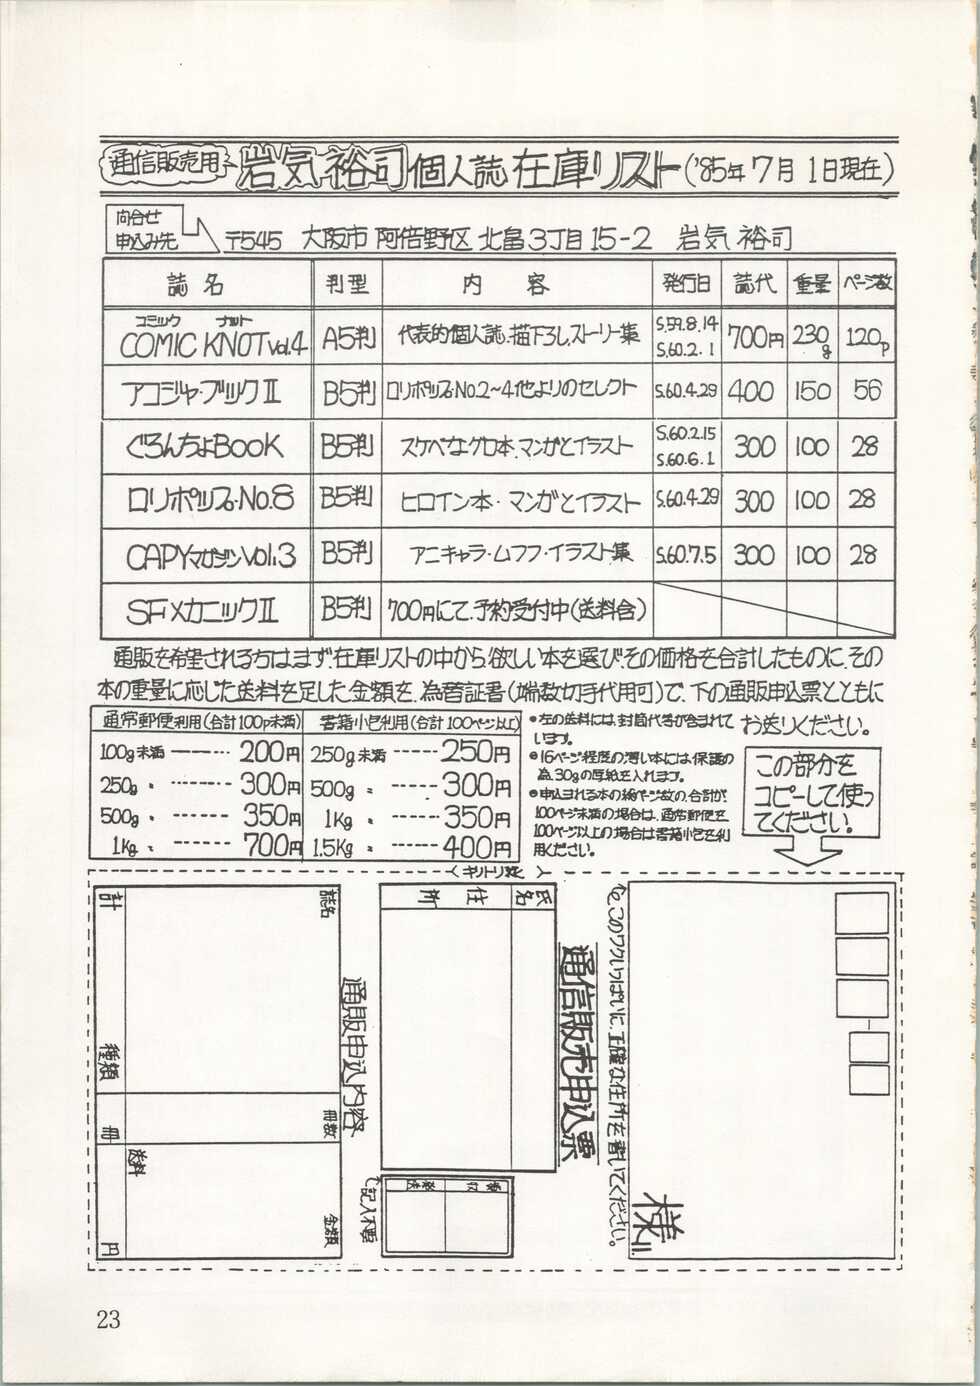 通信販売用 岩気裕司個人誌在庫リスト('85年7月1日現在)
問合せ
申込み先
〒545 大阪市阿倍野区北畠3丁目15-2 岩気裕司
誌名 判型 内容 発行日 誌代 重量 ページ数
コミック ナット
COMIC KNOT vol.4 A5判 代表的個人誌、描下ろしストーリー集 S.59.8.14 S.60.2.1 700円 230g 120p
アコジャ・ブックII B5判 ロリポップスNo.2〜4、他よりのセレクト S.60.4.29 400 150 56
ぐろんちょBOOK B5判 スケベなグロ本、マンガとイラスト S.60.2.15 S.60.6.1 300 100 28
ロリポップス・No.8 B5判 ヒロイン本・マンガとイラスト S.60.4.29 300 100 28
CAPYマガジンvol.3 B5判 アニキャラ・ムフフ・イラスト集 S.60.7.5 300 100 28
SFメカニックII B5判 700円にて、予約受付中(送料含)
通販を希望される方はまず、在庫リストの中から、欲しい本を選び、その価格を合計したものに、その
本の重量に応じた送料を足した金額を、為替証書(端数切手代用可)で、下の通販申込票とともに
お送りください。
通常郵便利用(合計100p未満)
100g未満 200円
250g 〃 300円
500g 〃 350円
1Kg 〃 700円
書籍小包利用(合計100ページ以上)
250g未満 250円
500g 〃 300円
1Kg 〃 350円
1.5Kg 〃 400円
●左の送料には、封筒代等が含まれて
います。
●16ページ程度の薄い本には、保護の
為、30gの厚紙を入れます。
●申込まれる本の総ページ数の、合計が、
100ページ未満の場合は、通常郵便を、
100ページ以上の場合は書籍小包を利
用ください。
この部分を
コピーして使っ
てください。
(キリトリ線)
様
このワクいっぱいに、正確な住所を書いてください。
通信販売申込票
氏名
住所
記入不要
通販申込内容
誌名
冊数
金額
送料
計
種類
冊
円
23